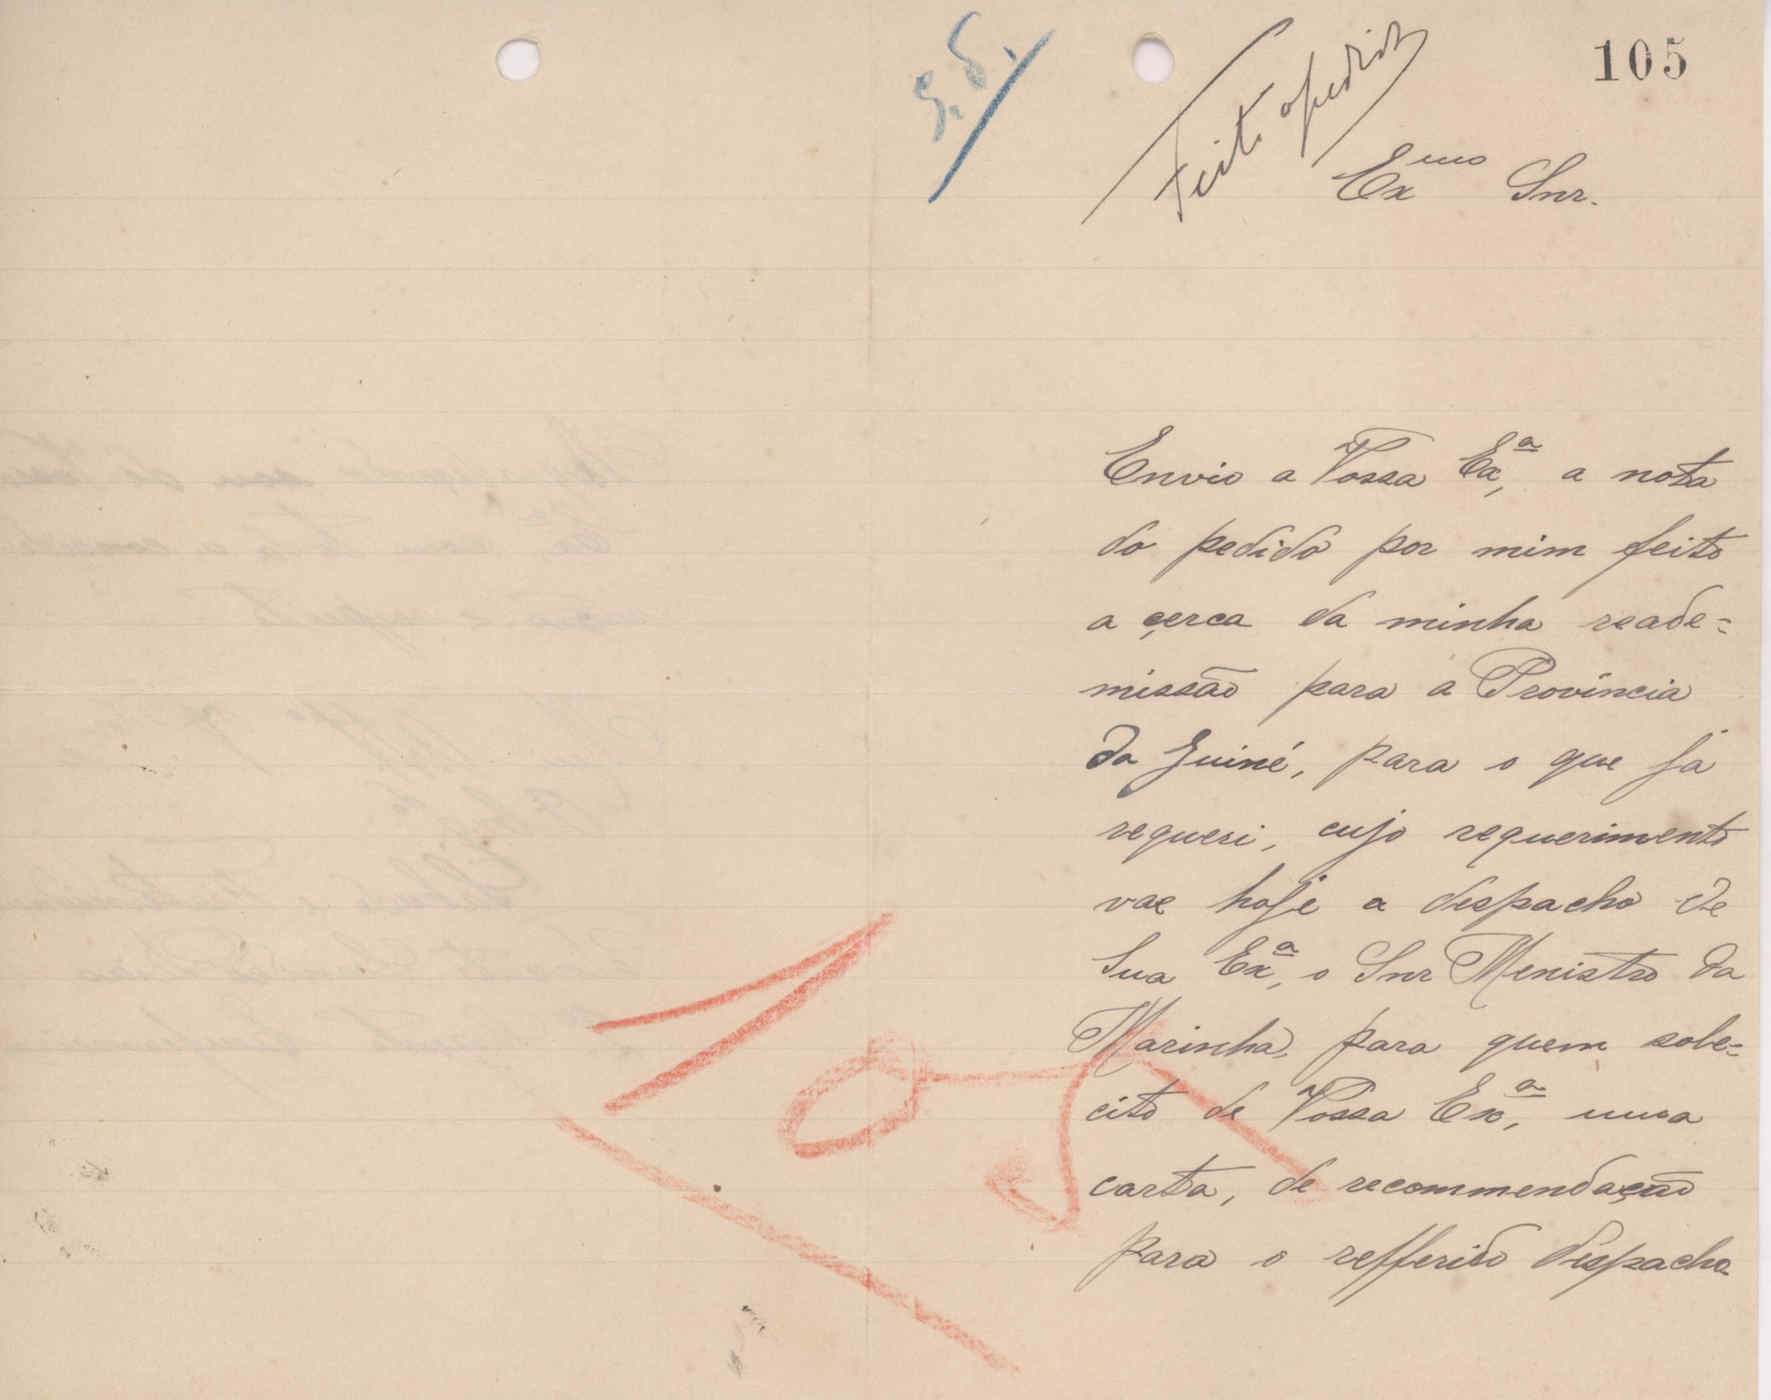 105
Feito o pedido
Exmo Snr.
Envio a Vossa Exª, a nota
do pedido por mim feito
a çerca da minha reade=
missão para a Provincia
da Guiné, para o que já
requeri, cujo requerimento
vae hoje a despacho de
Sua Exª, o Snr Menistro da
Marinha, para quem sole=
cito de Vossa Exª, uma
carta, de recommendação
para o refferido despacho
105